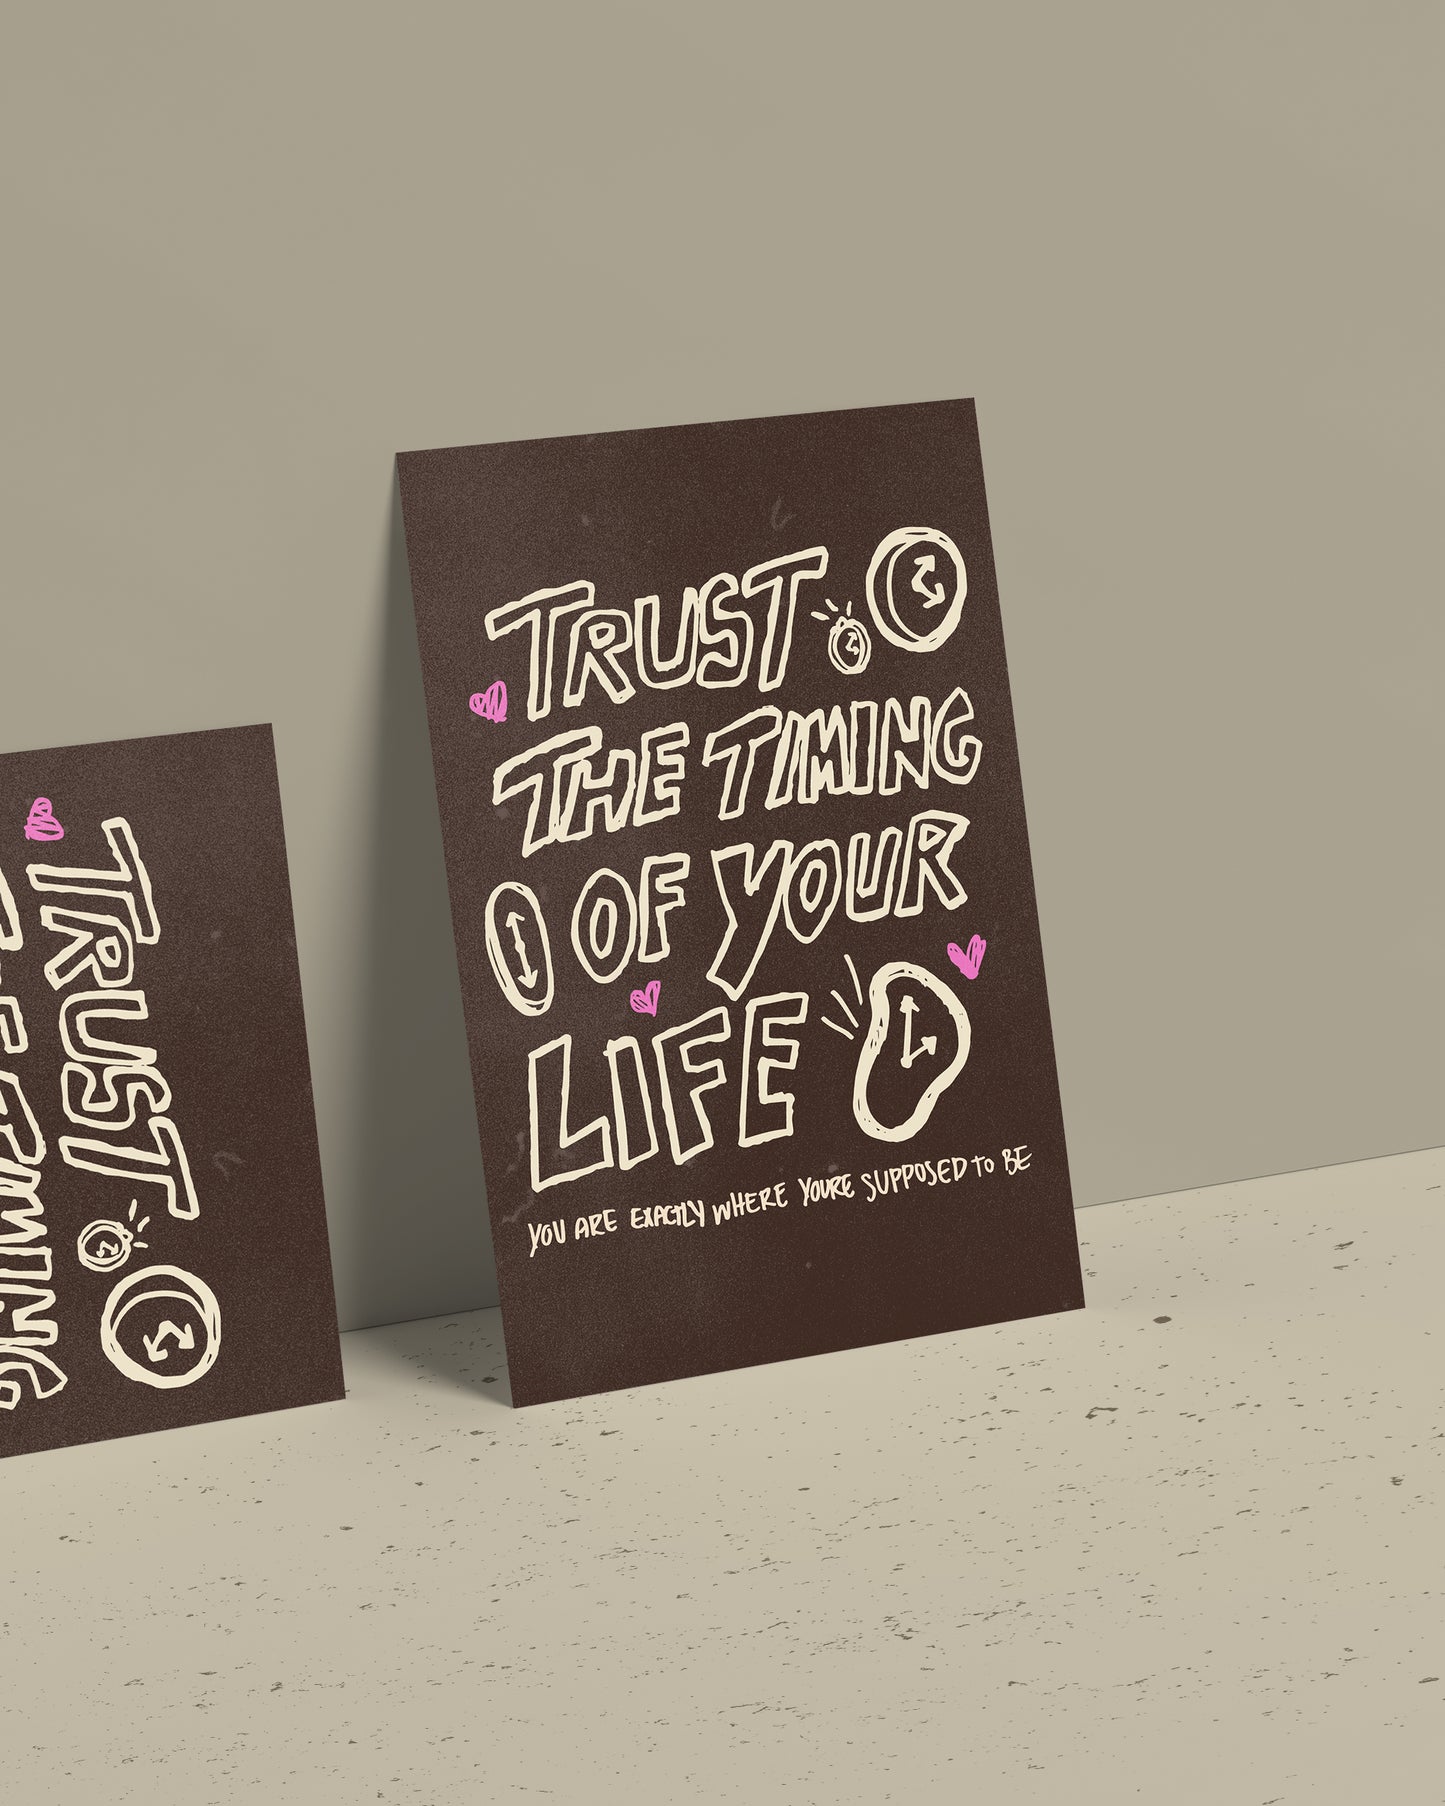 TRUST
TIMING
TRUST
THE TIMING
OF YOUR
LIFE
YOU ARE EXACTLY WHERE YOURE SUPPOSED TO BE